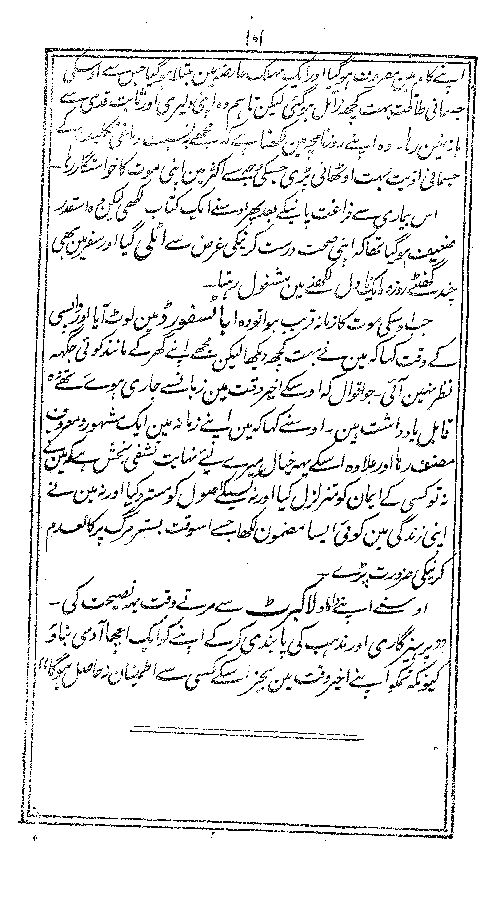 ۱۵۱
اپنے کام مین مصروف ہو گیا اور ایک مہلک عارضہ مین مبتلا ہو گیا جس سے اوسکی
جسمانی طاقت بہت کچھ زائل ہو گئی لیکن تاہم وہ اوسی دلیری اور ثابت قدمی سے
باز نہین رہا۔ وہ اپنے روزنامچہ مین لکھتا ہے کہ مجھے بہ نسبت دماغی تکلیف کے
جسمانی اذیت بہت اوٹھانی پڑی جسکی وجہ سے اکثر مین اپنی موت کا خواستگار رہا۔
اس بیماری سے فراغت پانیکے بعد پھر اوسنے ایک کتاب لکھی لیکن وہ اسقدر
ضعیف ہو گیا تھا کہ اپنی صحت درست کرنیکی غرض سے اٹلی گیا اور سفر مین بھی
چند گھنٹے روزہ ایک ناول لکھنے مین مشغول رہتا۔
جب اوسکی موت کا زمانہ قریب ہوا تو وہ ابباٹسفورڈ مین لوٹ آیا اور واپسی
کے وقت کہا کہ مین نے بہت کچھ دیکھا لیکن مجھے اپنے گھر کے مانند کوئی جگہہ
نظر نہین آئی۔ جو اقوال کہ اوسکے اخیر وقت مین زبان سے جاری ہوے تھے وہ
قابل یادداشت ہین۔ اوسنے کہا کہ مین اپنے زمانہ مین ایک مشہور و معروف
مصنف رہا اور علاوہ اسکے یہہ خیال میرے لئے نہایت تشفی بخش ہے کہ مین نے
نہ تو کسی کے ایمان کو متزلزل کیا اور نہ کسیکے اصول کو مسترد کیا اور نہ مین نے
اپنی زندگی مین کوئی ایسا مضمون لکھا جسے اسوقت بستر مرگ پر کالعدم
کرنیکی ضرورت پڑے۔
اوسنے اپنے داماد لاکہرٹ سے مرتے وقت یہہ نصیحت کی۔
"پرہیزگاری اور مذہب کی پابندی کر کے اپنے کو ایک اچھا آدمی بناؤ
کیونکہ تمکو اپنے اخیر وقت مین بجز اسکے کسی سے اطمینان نہ حاصل ہو گا"